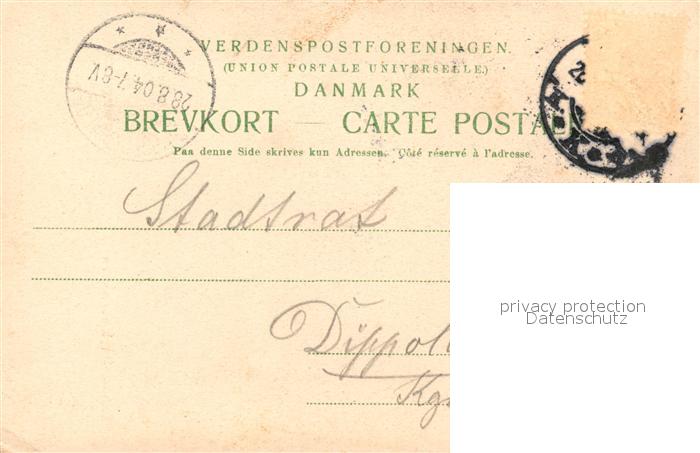 VERDENSPOSTFORENINGEN.
(UNION POSTALE UNIVERSELLE.)
DANMARK
BREVKORT — CARTE POSTALE
Paa denne Side skrives kun Adressen. Côté réservé à l'adresse.
28.8.04.7-8V
Stadtrat
Dippol
Kgr
privacy protection
Datenschutz